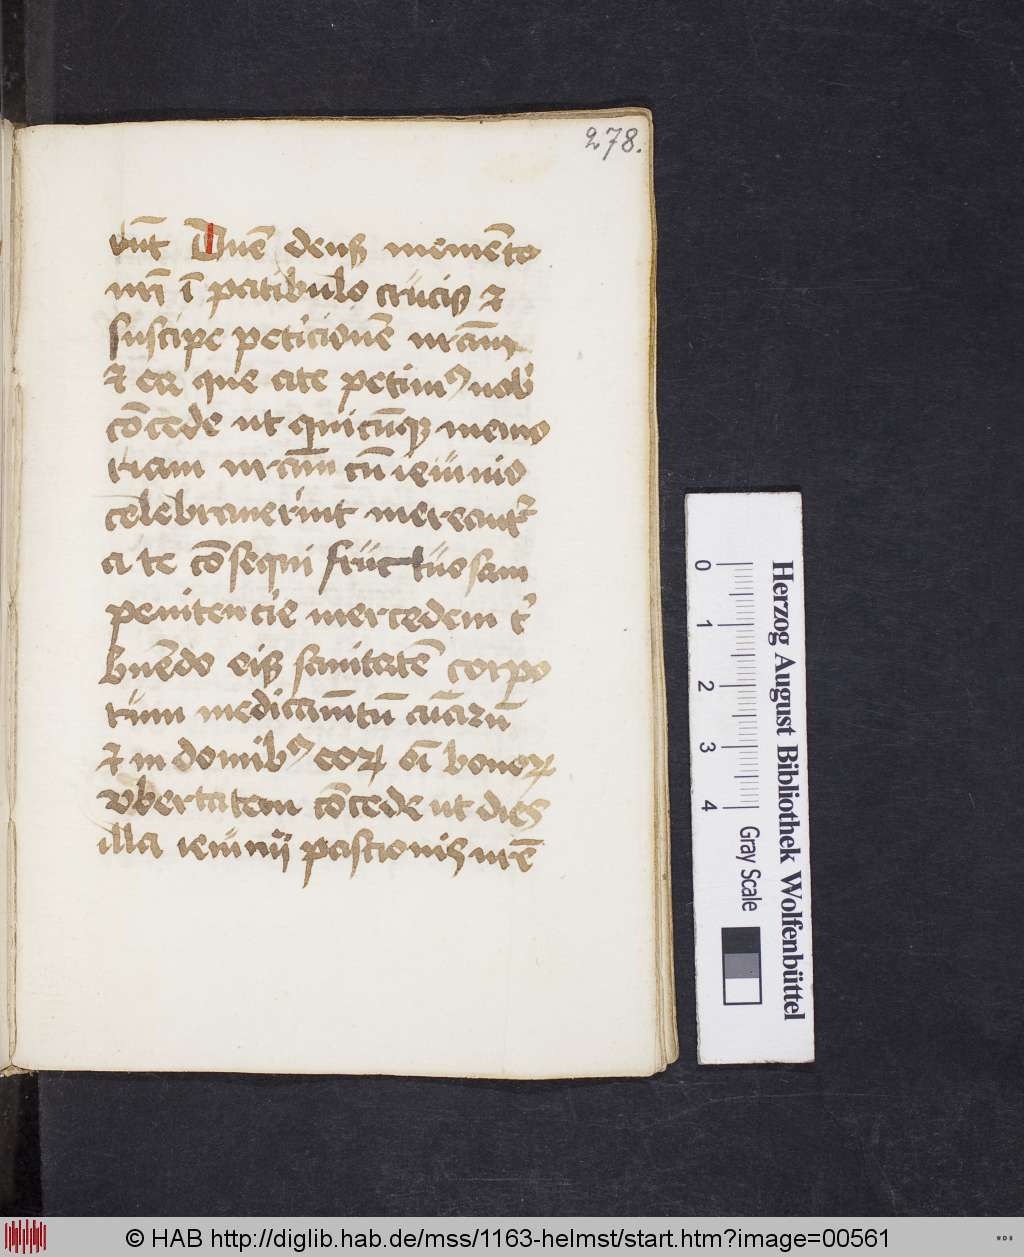 278.
vnt̄ Dn̄e deus memēto
nr̄i ī patibulo crucis et
suscipe peticionē nr̄am
et ea que a te petimꝰ nob̄
cōcede ut quicūqꝫ memo
riam nr̄am cū ieiunio
celebrauerint mereant᷑
a te cōsequi fructuosam
penitencie mercedem t̓
buēdo eis sanitatē corpo
rum medicam̄tū aīarū
et in domibꝰ eoꝝ oī bonoꝝ
vbertatem cōcede ut dies
illa ieiunij passionis nr̄e
Herzog August Bibliothek Wolfenbüttel
0 1 2 3 4
Gray Scale
© HAB http://diglib.hab.de/mss/1163-helmst/start.htm?image=00561